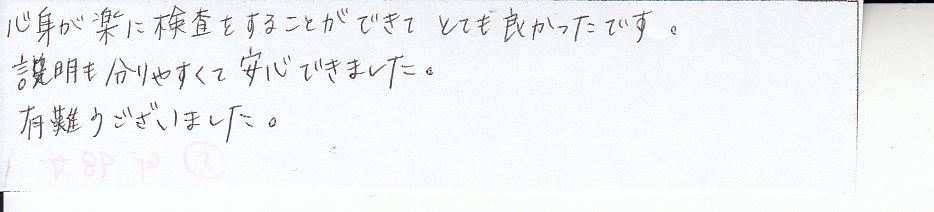 心身が楽に検査をすることができて とても良かったです。
説明も分りやすくて安心できました。
有難うございました。